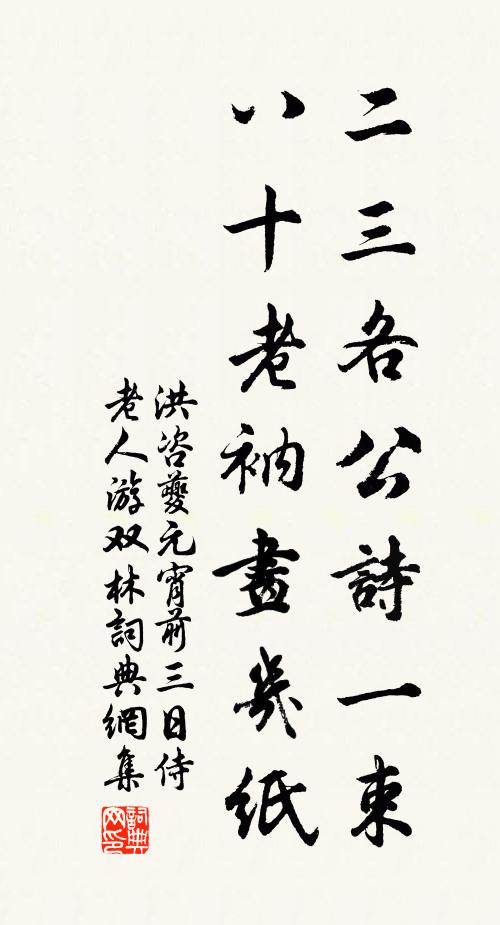 二三各公詩一束
八十老衲畫幾紙
洪咨夔元宵前三日侍
老人游双林詞典網集
詞典
网印